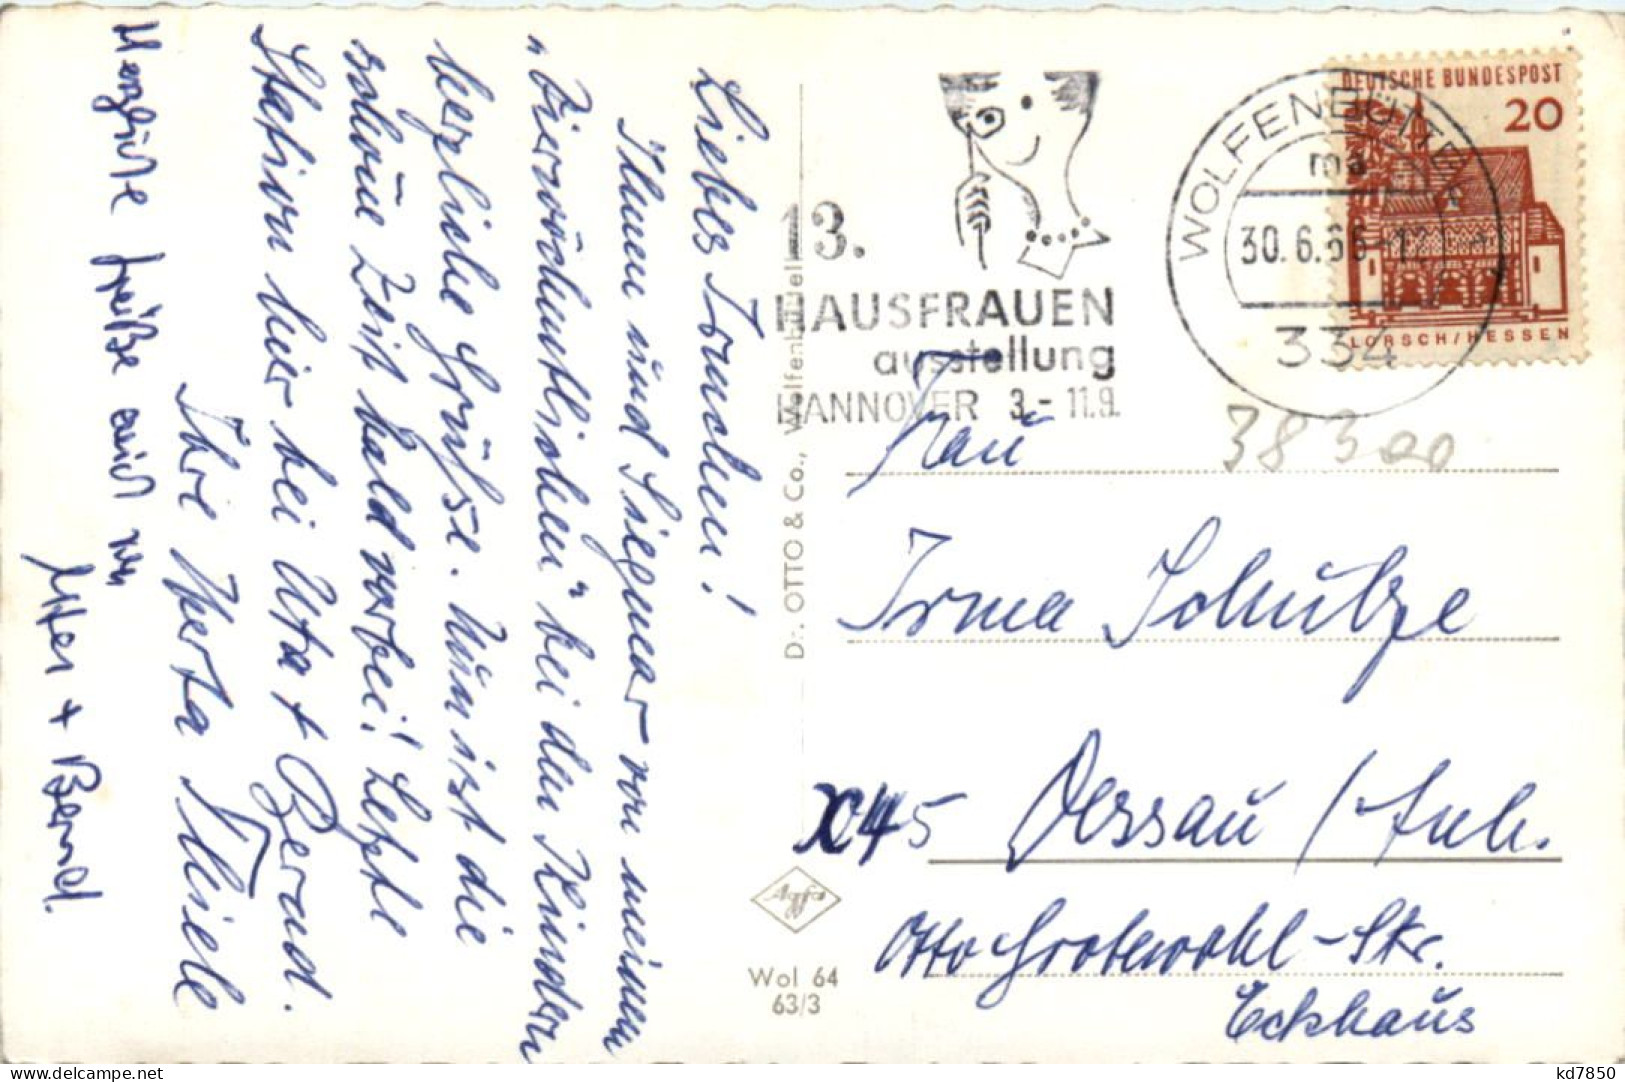 Liebes Irmchen!
Ihnen und Siegmar von meinem
"Vierwöchentlichen" bei den Kindern
herzliche Grüße. Nun ist die
schöne Zeit bald vorbei! Letzte
Station hier bei Uta + Bernd.
Ihre Herta Thiele
Herzliche Grüße auch von
Uta + Bernd.
13.
HAUSFRAUEN
ausstellung
HANNOVER 3.-11.9.
WOLFENBÜTTEL
ma
30.6.66-12
334
DEUTSCHE BUNDESPOST
20
LORSCH/HESSEN
38300
Frau
Irma Schulze
X45 Dessau / Anh.
Otto Grotewohl-Str.
Eckhaus
Dr. OTTO & Co., Wolfenbüttel
Agfa
Wol 64
63/3
delcampe.net
kd7850